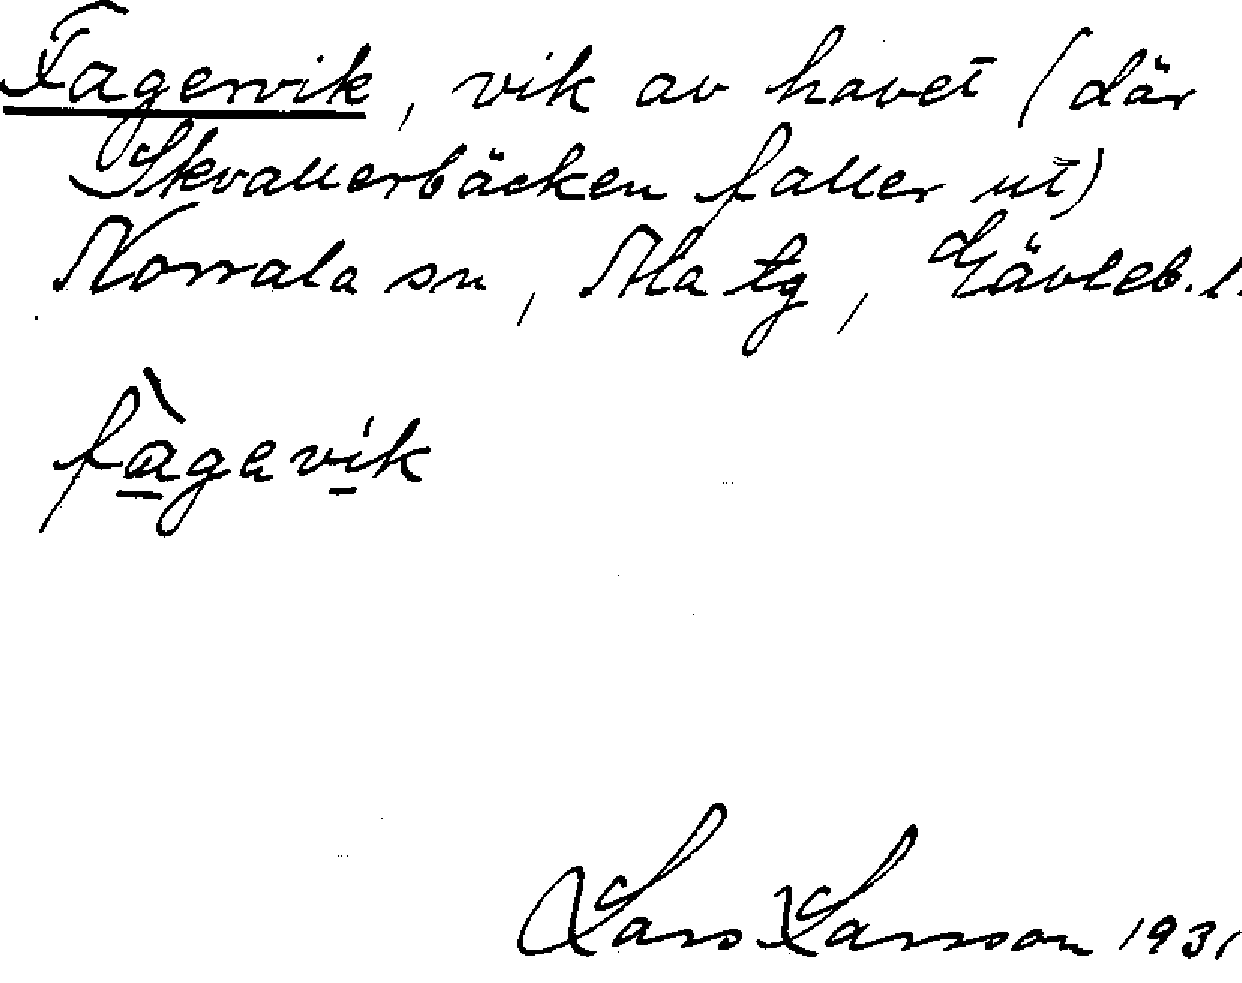 Fagervik, vik av havet (där
Skvallerbäcken faller ut)
Norrala sn, Ala tg, Gävleb. l.
fàgavik
Lars Larsson 1931